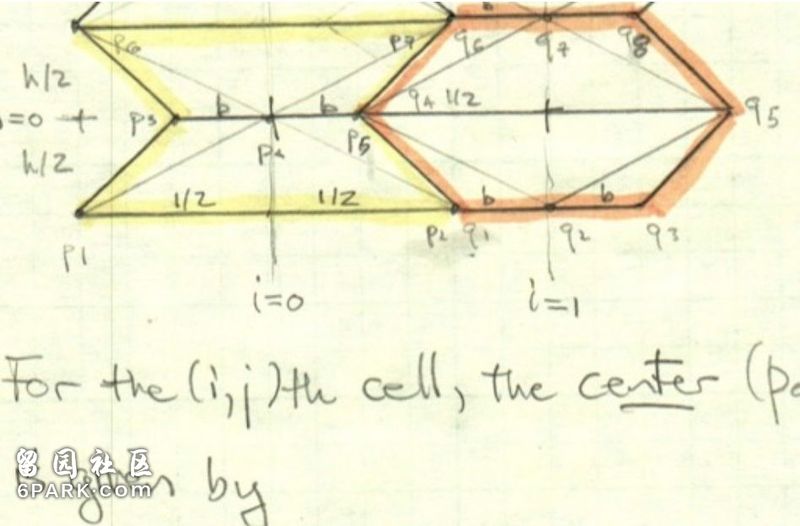 b
p6 p7 q6 q7 q8
h/2
b b q4 1/2
=0 p3 p4 p5 q5
h/2
1/2 1/2 b b
p1 p2 q1 q2 q3
i=0 i=1
For the (i,j)th cell, the center (p
is given by
留园社区
6PARK.com